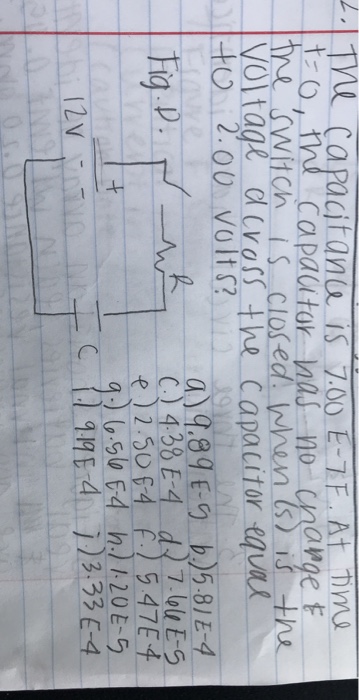 2. The capacitance is 7.00 E-7 F. At time
t=0, the capacitor has no charge &
the switch is closed. When (s) is the
voltage across the capacitor equal
to 2.00 volts?
Fig. D.
R
12V
+
C
a.) 9.89 E-5 b.) 5.81 E-4
c.) 4.38 E-4 d.) 7.66 E-5
e.) 2.50 E-4 f.) 5.47 E-4
g.) 6.56 E-4 h.) 1.20 E-5
i.) 9.19 E-4 j.) 3.33 E-4